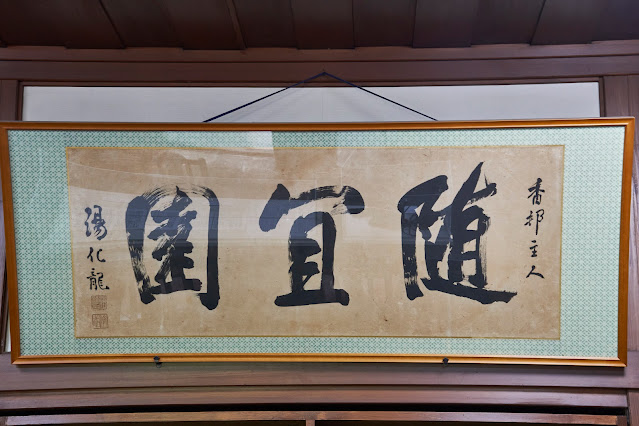 香邨主人
随宜園
湯化龍